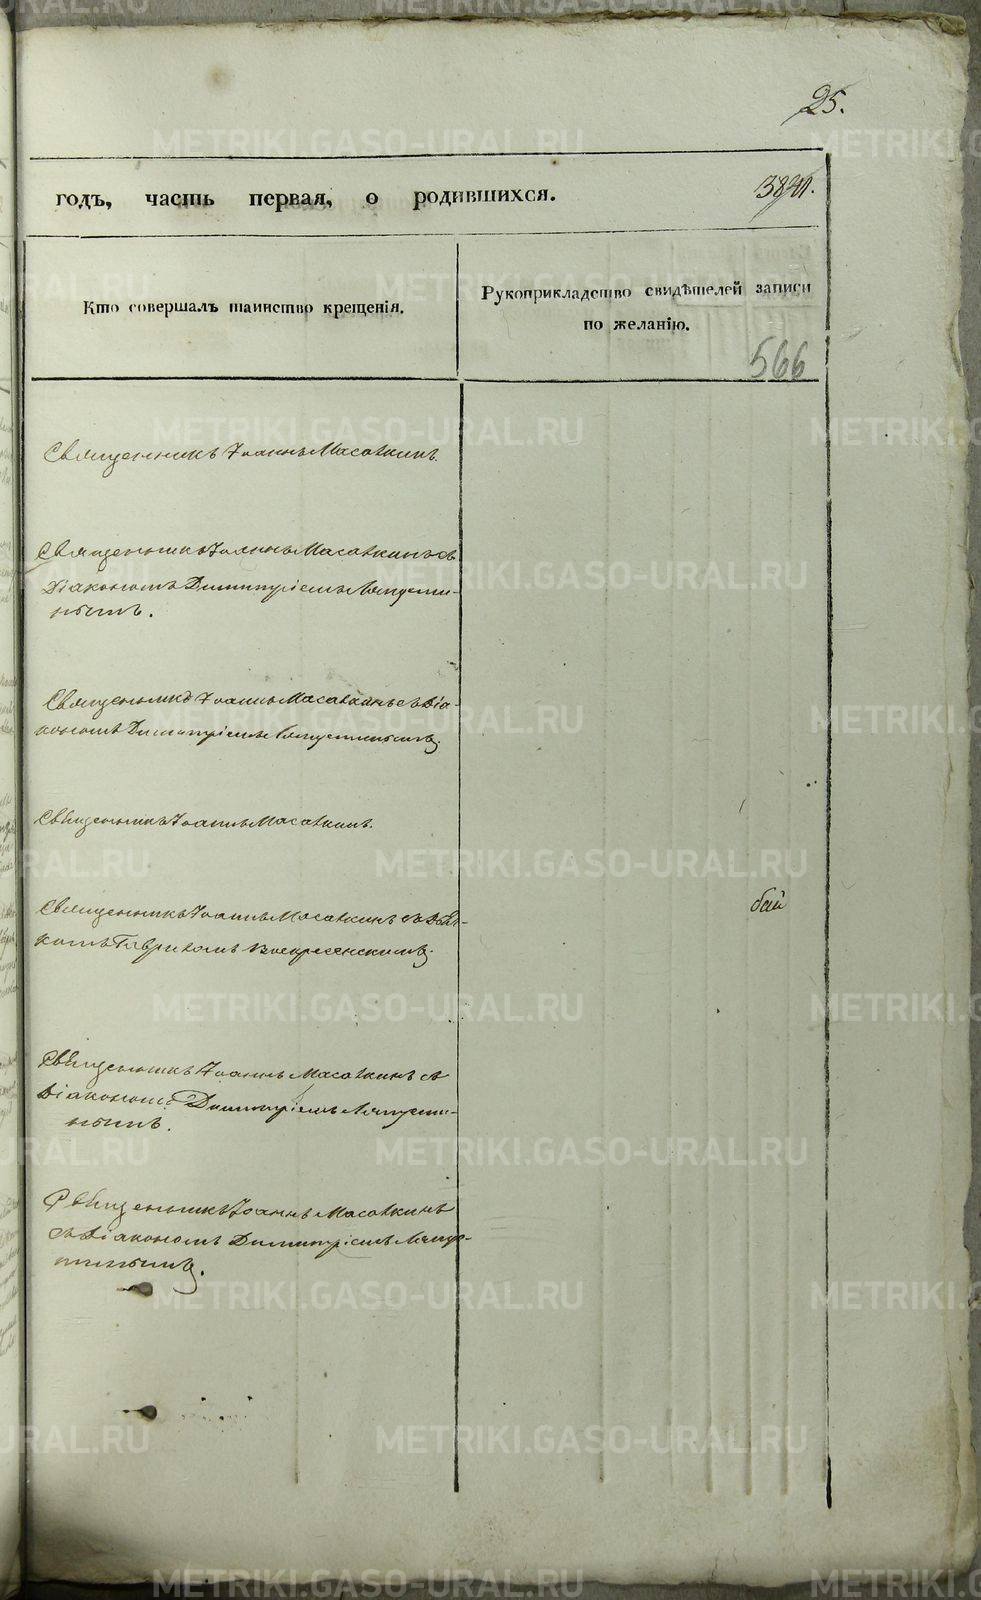 25.
годъ, часть первая, о родившихся.
Кто совершалъ таинство крещенія.
Рукоприкладство свидѣтелей записи
по желанію.
566
Священникъ Іоаннъ Масаѵкинъ.
Священникъ Іоаннъ Масаѵкинъ съ
Діакономъ Димитріемъ Ляпусти-
нымъ.
Священникъ Іоаннъ Масаѵкинъ съ Діа-
кономъ Димитріемъ Ляпустинымъ.
Священникъ Іоаннъ Масаѵкинъ.
Священникъ Іоаннъ Масаѵкинъ съ Дьяч-
комъ Гавриломъ Воскресенскимъ.
бай
Священникъ Іоаннъ Масаѵкинъ съ
Діакономъ Димитріемъ Ляпусти-
нымъ.
Священникъ Іоаннъ Масаѵкинъ
съ Діакономъ Димитріемъ Ляпус-
тинымъ.
METRIKI.GASO-URAL.RU